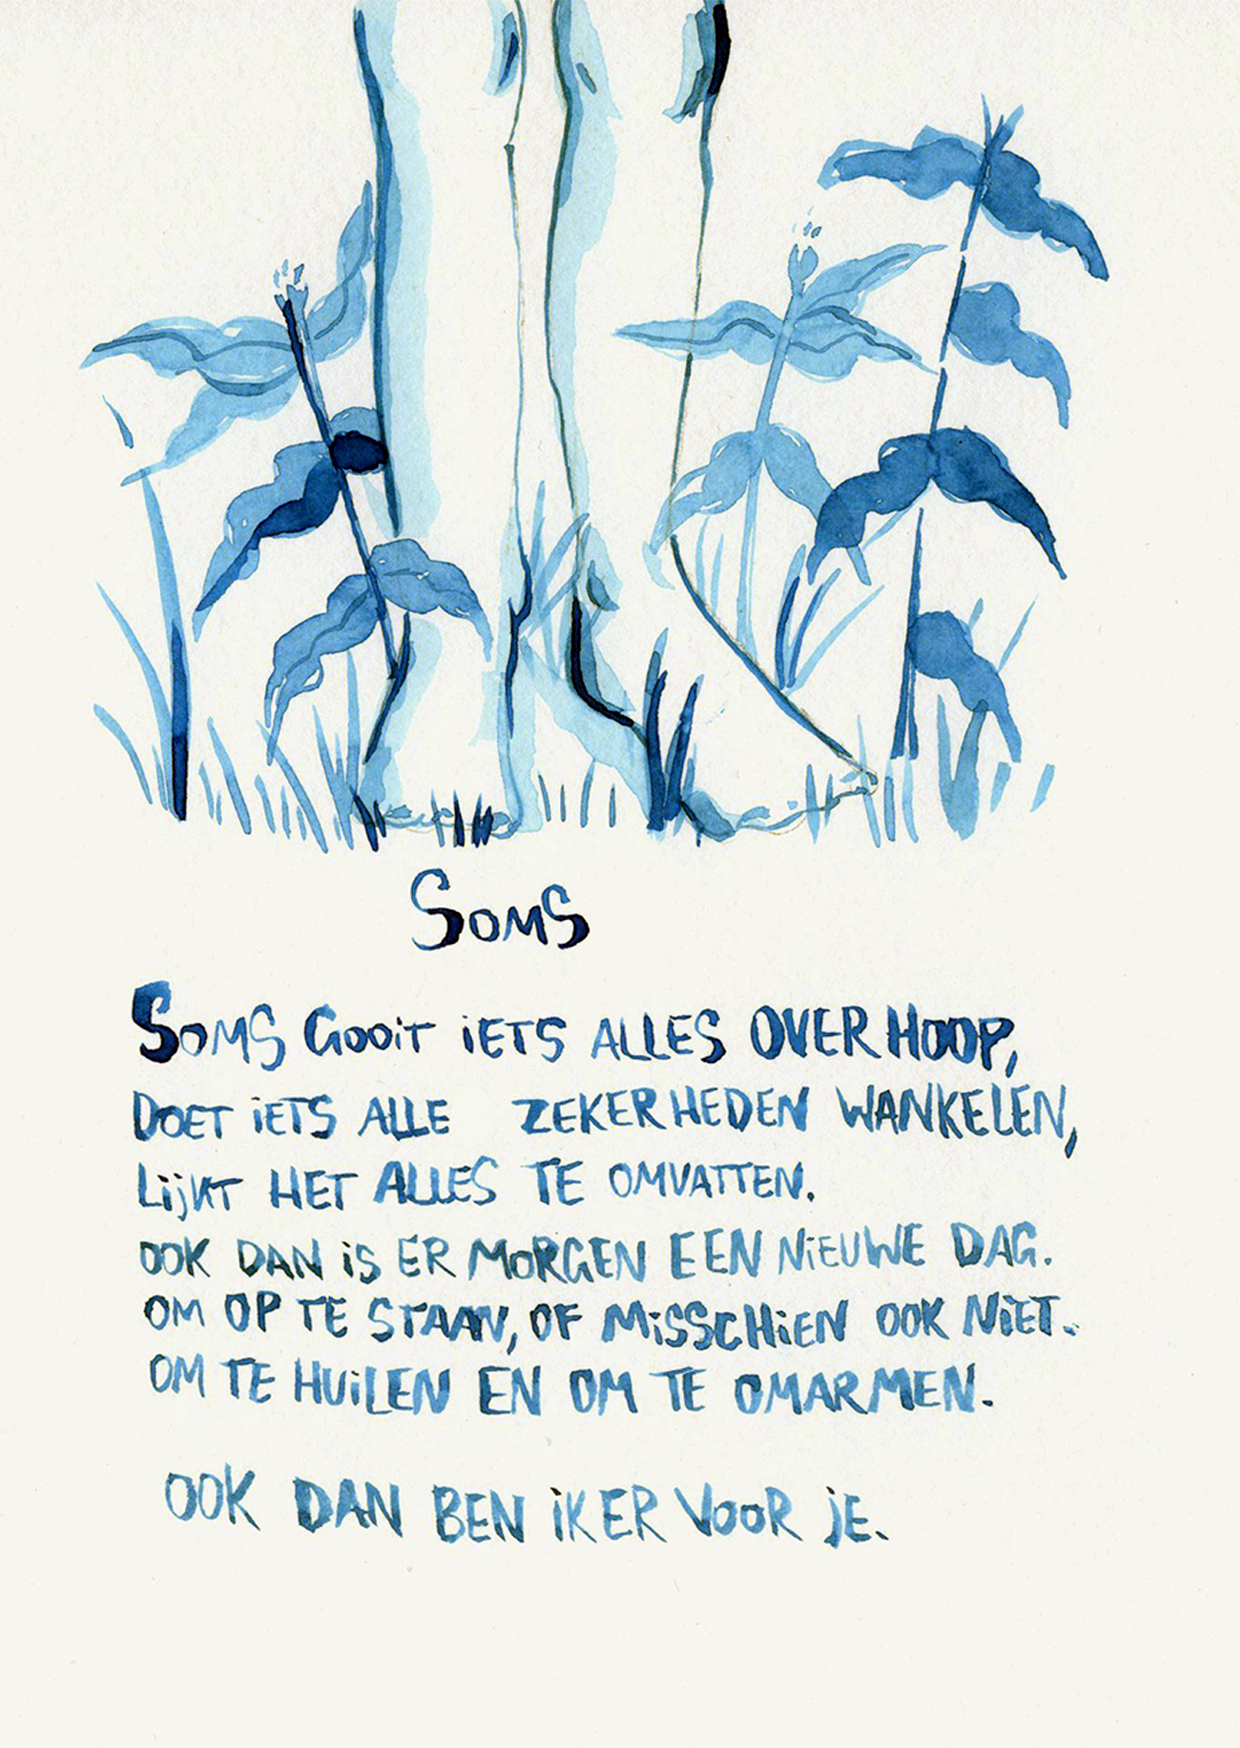 Soms
Soms Gooit iETS ALLES OVERHOOP,
DOET iETS ALLE ZEKERHEDEN WANKELEN,
Lijkt HET ALLES TE OMVATTEN.
OOK DAN iS ER MORGEN EEN NiEUWE DAG.
OM OP TE STAAN, OF MiSSCHiEN OOK NiET.
OM TE HUiLEN EN OM TE OMARMEN.
OOK DAN BEN iK ER VOOR jE.